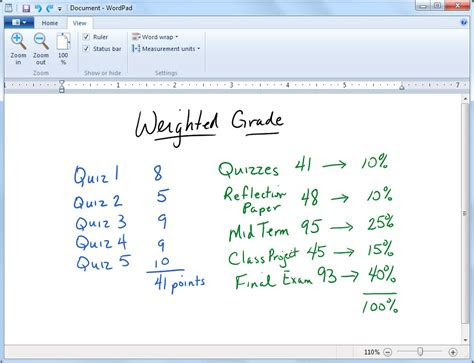 Document - WordPad
Home
View
Zoom in
Zoom out
100%
Ruler
Status bar
Word wrap
Measurement units
Zoom
Show or hide
Settings
1 2 3 4 5 6 7
Weighted Grade
Quiz 1 8
Quiz 2 5
Quiz 3 9
Quiz 4 9
Quiz 5 10
41 points
Quizzes 41 → 10%
Reflection Paper 48 → 10%
Mid Term 95 → 25%
Class Project 45 → 15%
Final Exam 93 → 40%
100%
110%